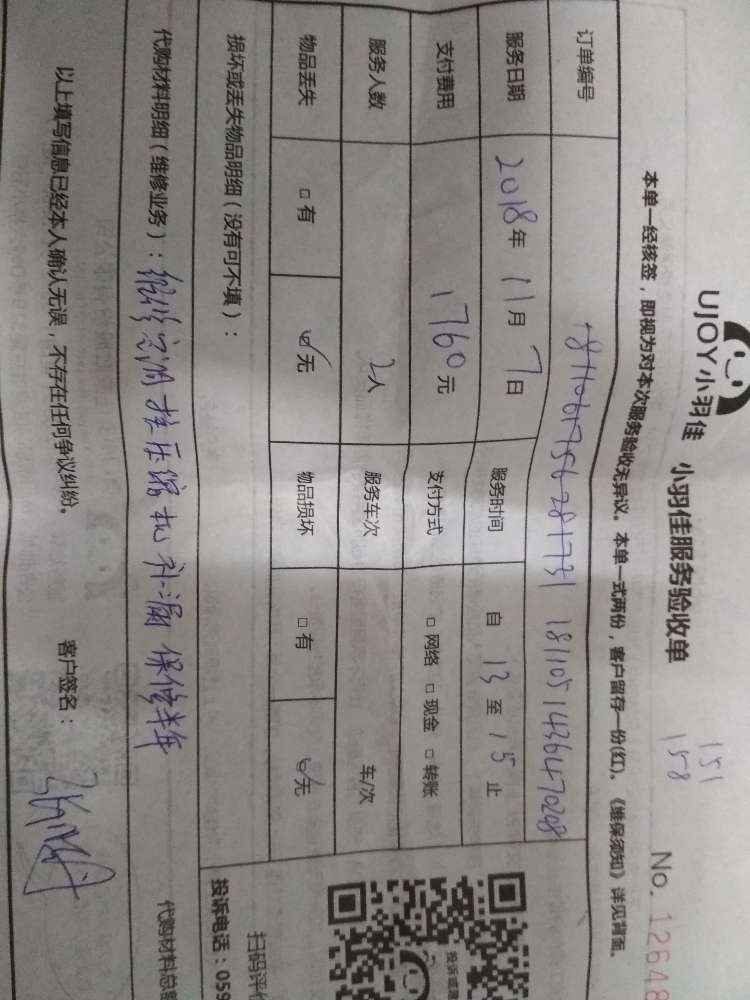 UJOY小羽佳 小羽佳服务验收单
151
158
No. 12648
本单一经核签，即视为对本次服务验收无异议。本单一式两份，客户留存一份(红)。《维保须知》详见背面。
订单编号 1811061756281731 1811051436470208
服务日期 2018年11月7日 服务时间 自 13 至 15 止
支付费用 1760元 支付方式 □ 网络 □ 现金 □ 转账
服务人数 2人 服务车次 车/次
物品丢失 □ 有 ☑ 无 物品损坏 □ 有 ☑ 无
损坏或丢失物品明细（没有可不填）：
代购材料明细（维修业务）：维修空调 换压缩机 补漏 保修半年
代购材料总
以上填写信息已经本人确认无误，不存在任何争议纠纷。 客户签名：
投诉或
扫码评价
投诉电话：059